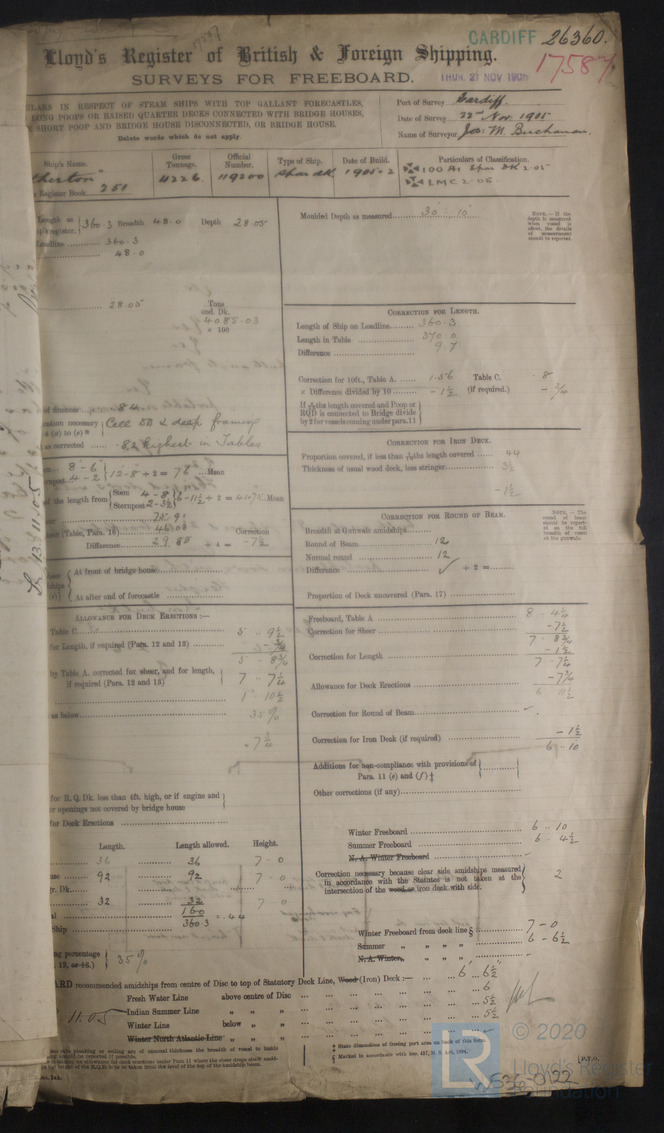 CARDIFF 26360.
Lloyd's Register of British & Foreign Shipping.
17587
SURVEYS FOR FREEBOARD.
THUR. 21 NOV 1905
LARS IN RESPECT OF STEAM SHIPS WITH TOP GALLANT FORECASTLES,
LONG POOPS OR RAISED QUARTER DECKS CONNECTED WITH BRIDGE HOUSES,
SHORT POOP AND BRIDGE HOUSE DISCONNECTED, OR BRIDGE HOUSE.
Delete words which do not apply.
Port of Survey Cardiff.
Date of Survey 22nd Nov. 1905
Name of Surveyor Jos: M. Buchanan.
Ship's Name. Gross Tonnage. Official Number. Type of Ship. Date of Build. Particulars of Classification.
therton" 4226. 119200 Spar dk. 1905-2 100 A1 Spar Dk 2.05
Register Book 251 LMC 2.05
Length as 360.3 Breadth 48.0 Depth 28.05
Loadline 360.3
48.0
28.05 Tons und. Dk.
4085.03
× 100
of fineness .84
Cell DB & deep framing
as corrected .82 highest in Tables
8-6
Sternpost 4-2 } 12-8 ÷ 2 = 76" Mean
of the length from { Stem 4-8
Sternpost 2-3½ } 6-11½ ÷ 2 = 41.75 Mean
(Table, Para. 18) 46.03 Correction
Difference 29.85 ÷ 4 = -7½
At front of bridge house
At after end of forecastle
ALLOWANCE FOR DECK ERECTIONS :—
Table C 5 .. 9½
for Length, if required (Para. 12 and 13)
5 .. 8¾
by Table A. corrected for sheer, and for length, if required (Para. 12 and 13) 7 .. 7¼
1 .. 10½
as below 35%
-7¾
for R. Q. Dk. less than 4ft. high, or if engine and
openings not covered by bridge house
for Deck Erections
Length. Length allowed. Height.
36 36 7-0
92 92 7-0
32 32 7 0
160 = .44
Ship 360.3
percentage
12, or 13.) } 35%
Moulded Depth as measured 30 .. 10"
NOTE.—If the depth is measured when vessel is afloat, the details of measurement should be reported.
CORRECTION FOR LENGTH.
Length of Ship on Loadline 360.3
Length in Table 370.0
Difference 9.7
Correction for 10ft., Table A. 1.56 Table C. .8
× Difference divided by 10 -1½ (If required.) -¾
If 6/10ths length covered and Poop or
RQD is connected to Bridge divide
by 2 for vessels coming under para. 11
CORRECTION FOR IRON DECK.
Proportion covered, if less than 6/10ths length covered .44
Thickness of usual wood deck, less stringer 3½
-1½
CORRECTION FOR ROUND OF BEAM.
Breadth at Gunwale amidships
Round of Beam 12
Normal round 12
Difference ✓ ÷ 2 =
Proportion of Deck uncovered (Para. 17)
NOTE.—The round of beam should be reported on the full breadth of vessel at the gunwale.
Freeboard, Table A 8 - 4¼
Correction for Sheer -7½
7 - 8¾
Correction for Length -1½
7 - 7¼
Allowance for Deck Erections -7¾
6 11½
Correction for Round of Beam
Correction for Iron Deck (if required) -1½
6 - 10
Additions for non-compliance with provisions of
Para. 11 (e) and (f) ‡
Other corrections (if any)
Winter Freeboard 6 .. 10
Summer Freeboard 6 - 4½
N. A. Winter Freeboard
Correction necessary because clear side amidships measured
in accordance with the Statutes is not taken at the
intersection of the wood or iron deck with side. } 2
Winter Freeboard from deck line § 7 - 0
Summer „ „ „ „ 6 - 6½
N. A. Winter,
ARD recommended amidships from centre of Disc to top of Statutory Deck Line, Wood (Iron) Deck :— 6' .. 6½"
Fresh Water Line above centre of Disc 6
Indian Summer Line „ „ 5½
Winter Line below „ „ 5½
Winter North Atlantic Line „ „
11.05
‡ State dimensions of freeing port area on back of this form.
§ Marked in accordance with Sec. 437, M. S. Act, 1894.
[P.T.O.
© 2020
LR
Lloyds Register
Foundation
W536-0122